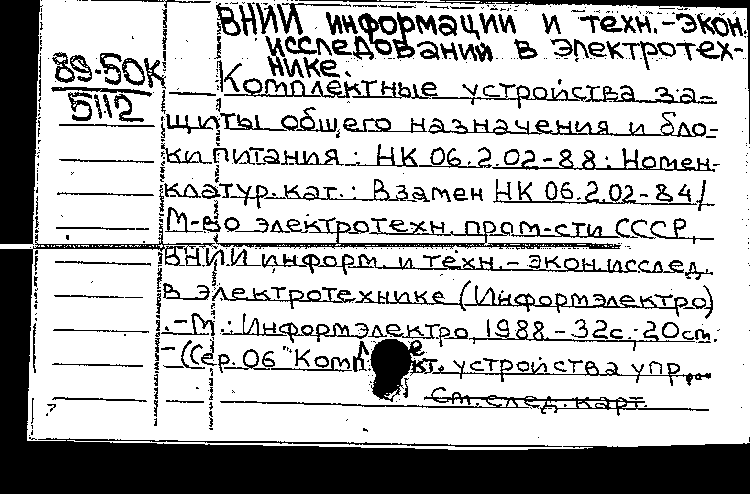 ВНИИ информации и техн.-экон.
исследований в электротех-
нике.
89-50К
5112
Комплектные устройства за-
щиты общего назначения и бло-
ки питания: НК 06.2.02-88: Номен-
клатур. кат.: Взамен НК 06.2.02-84/
М-во электротехн. пром-сти СССР,
ВНИИ информ. и техн.-экон. исслед.
в электротехнике (Информэлектро)
.-М.: Информэлектро, 1988.-32с.; 20см.
-(Сер. 06 "Комплект. устройства упр...
См. след. карт.